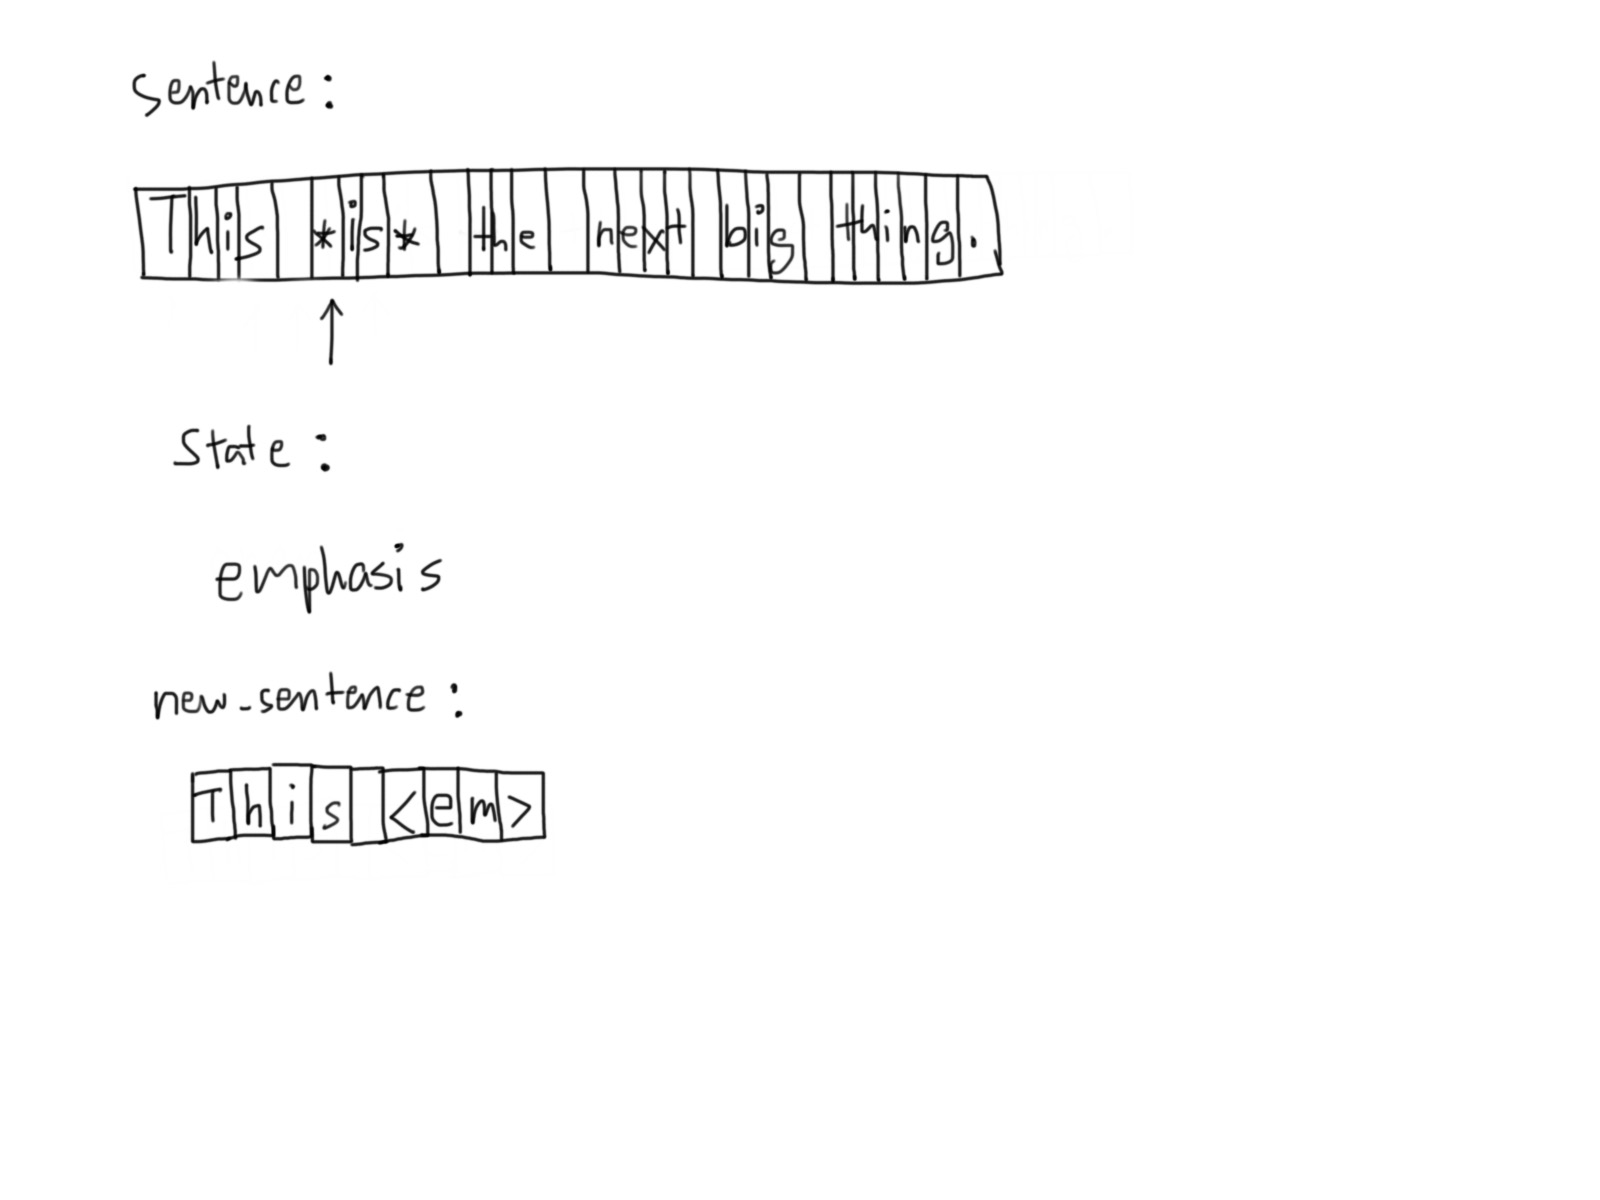 sentence:
This *is* the next big thing.
↑
state:
emphasis
new_sentence:
This <em>